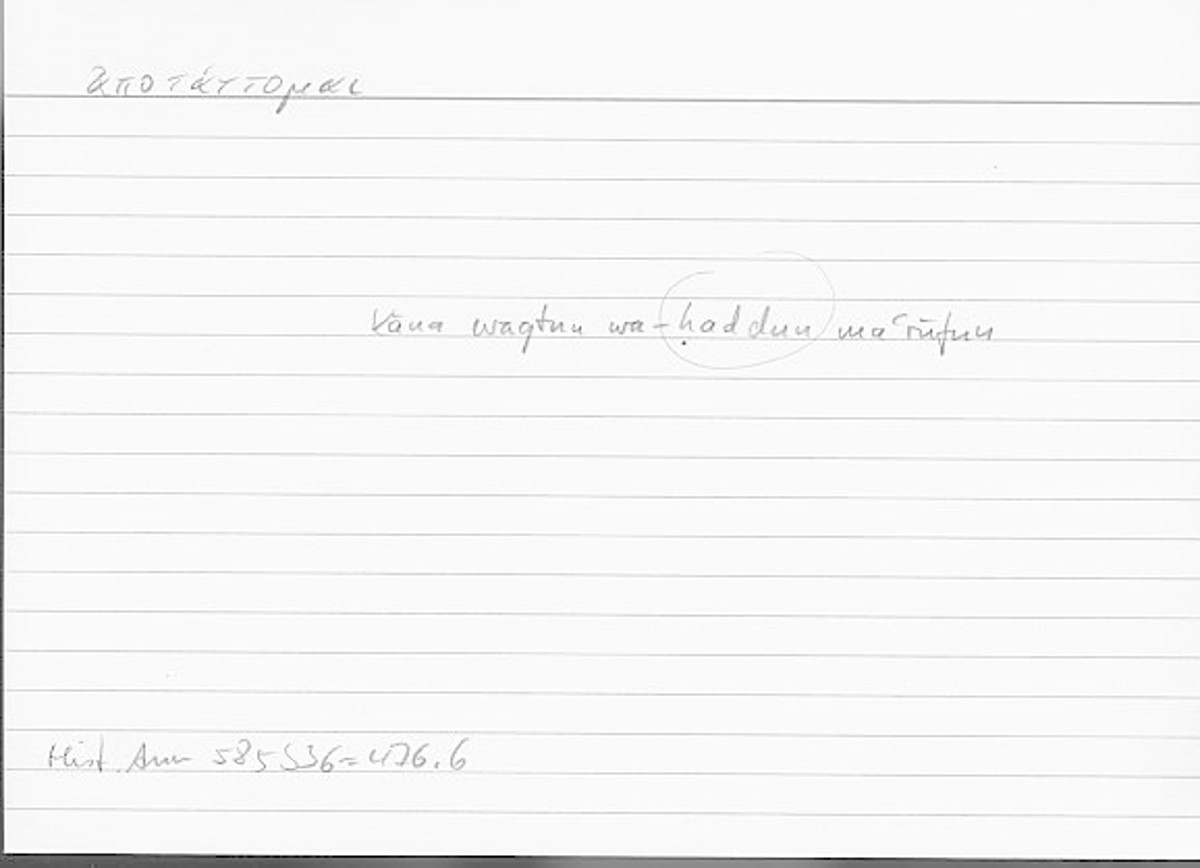 ἀποτάττομαι
kāna waqtun wa-ḥaddun maʿrūfun
Hist. Anim 585b36=476.6